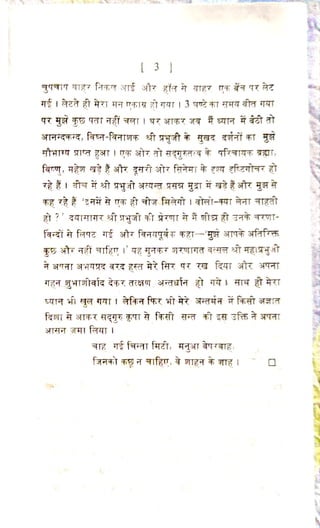 [ 3 ]
चुपचाप बाहर निकल आई और हॉल से बाहर एक बैंच पर लेट
गई । लेटते ही मेरा मन एकाग्र हो गया । 3 घण्टे का समय बीत गया
पर मुझे कुछ पता नहीं चला । घर आकर जब मैं ध्यान में बैठी तो
आनन्दकन्द, विघ्न-विनाशक श्री प्रभुजी के सुखद दर्शनों का मुझे
सौभाग्य प्राप्त हुआ । एक ओर तो सदगुरुतत्व के परिचायक ब्रह्मा,
विष्णु, महेश खड़े हैं और दूसरी ओर सिनेमा के दृश्य दृष्टिगोचर हो
रहे हैं । बीच में श्री प्रभुजी अत्यन्त प्रसन्न मुद्रा में खड़े हैं और मुझ से
कह रहे हैं 'इनमें से एक ही चीज मिलेगी । बोलो-क्या लेना चाहती
हो ?' दयासागर श्री प्रभुजी की प्रेरणा से मैं शीघ्र ही उनके चरणा-
विन्दों से लिपट गई और विनयपूर्वक कहा—'मुझे आपके अतिरिक्त
कुछ और नहीं चाहिए ।' यह सुनकर शरणागत वत्सल श्री महाप्रभुजी
ने अपना अभयप्रद वरद हस्त मेरे सिर पर रख दिया और अपना
गहन शुभाशीर्वाद देकर तत्क्षण अन्तर्धान हो गये । साथ ही मेरा
ध्यान भी खुल गया । लेकिन फिर भी मेरे अन्तर्मन में किसी अज्ञात
दिशा से आकर सद्गुरु कृपा से किसी सन्त की इस उक्ति ने अपना
आसन जमा लिया ।
चाह गई चिन्ता मिटी, मनुआ बेपरवाह,
जिनको कछु न चाहिए, वे शाहन के शाह ।